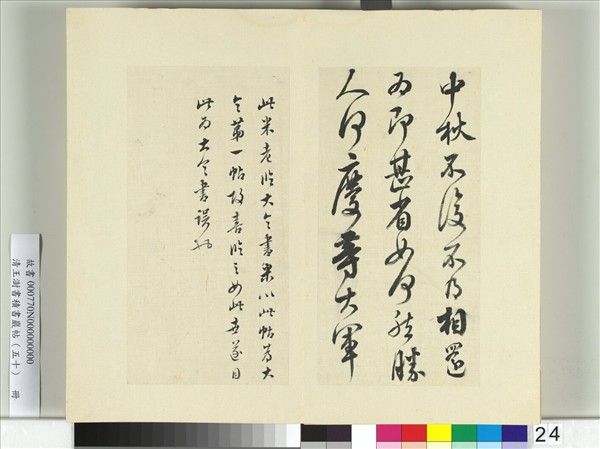 中秋不復不得相還
為即甚省如何然勝
人何慶等大軍
此米老臨大令書米以此帖為大
令第一帖故喜臨之如此世遂目
此為大令書誤
故書 000770N000000000
清王澍書積書巖帖(五十) 冊
24